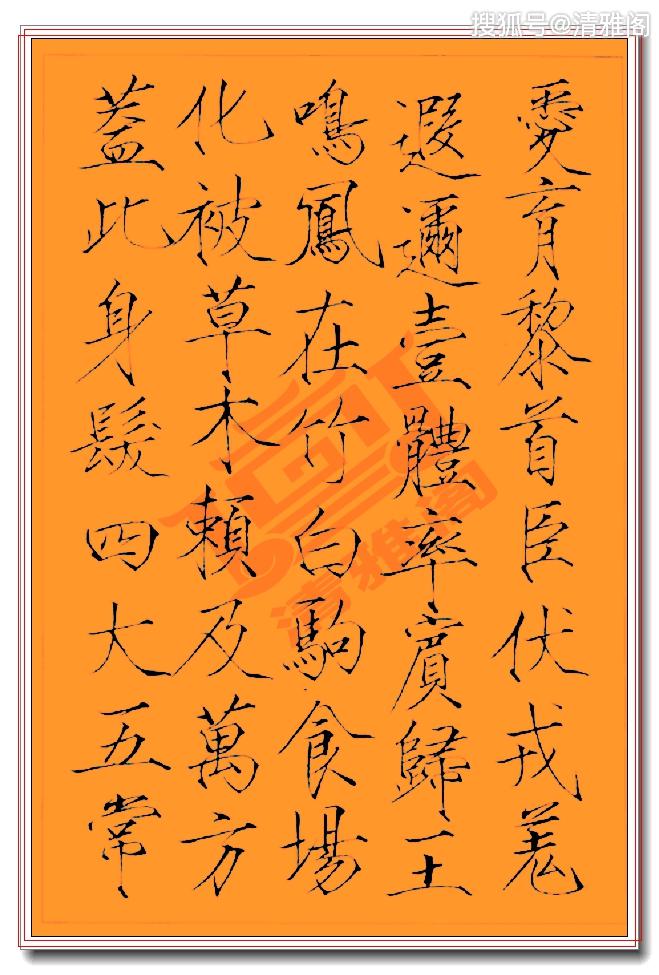 搜狐号@清雅阁
愛育黎首臣伏戎羌
遐邇壹體率賓歸王
鳴鳳在竹白駒食場
化被草木賴及萬方
蓋此身髮四大五常
清雅阁